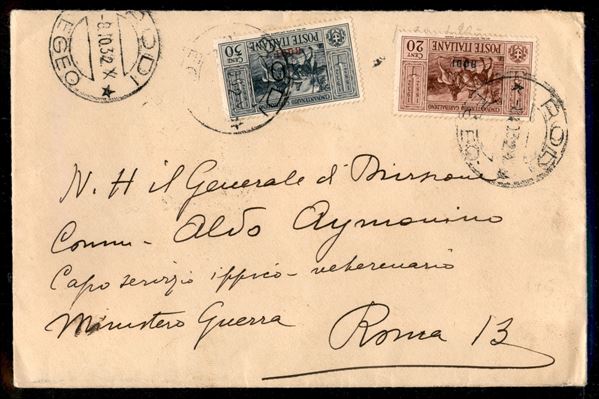 RODI
EGEO
-8.10.32.X
POSTE ITALIANE
CENT 30
CINQUANTENARIO
POSTE ITALIANE
CENT 20
CINQUANT. GARIBALDINO
RODI
RODI
RODI
N. H il Generale di Divisione
Comm - Aldo Aymonino
Capo servizio ippico - veterinario
Ministero Guerra
Roma 13